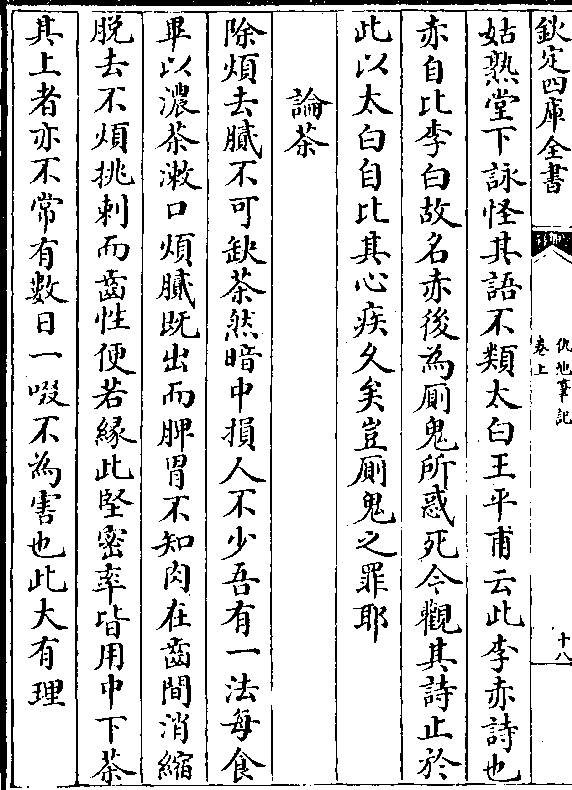 欽定四庫全書
仇池筆記
卷上
十八
姑熟堂下詠怪其語不類太白王平甫云此李赤詩也
赤自比李白故名赤後為厠鬼所惑死今觀其詩止於
此以太白自比其心疾久矣豈厠鬼之罪耶
論茶
除煩去膩不可缺茶然暗中損人不少吾有一法每食
畢以濃茶漱口煩膩既出而脾胃不知肉在齒間消縮
脱去不煩挑刺而齒性便若緣此堅密率皆用中下茶
其上者亦不常有數日一啜不為害也此大有理